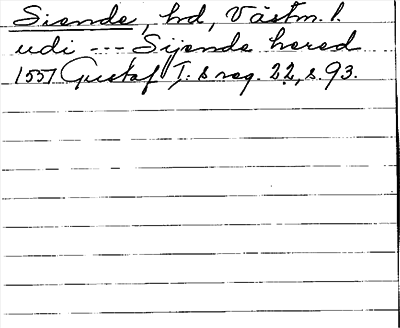 Siende, hd, Västm. l.
udi --- Sijende hered
1557 Gustaf I:s reg. 22, s. 93.